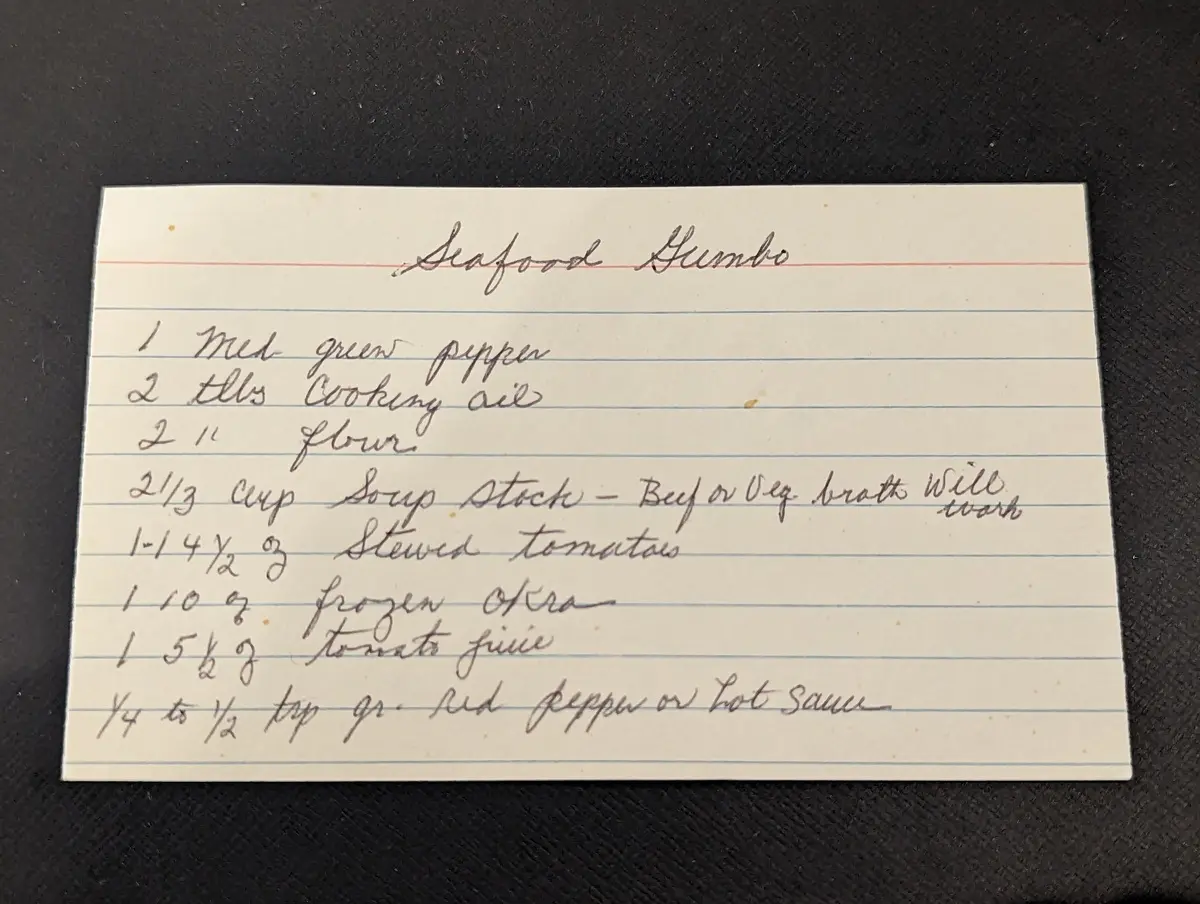 Seafood Gumbo
1 Med green pepper
2 tlbs Cooking oil
2 " flour
2 1/3 cup Soup stock - Beef or Veg. broth Will work
1-14 1/2 oz Stewed tomatoes
1 10 oz frozen okra
1 5 1/2 oz tomato juice
1/4 to 1/2 tsp gr. red pepper or hot sauce